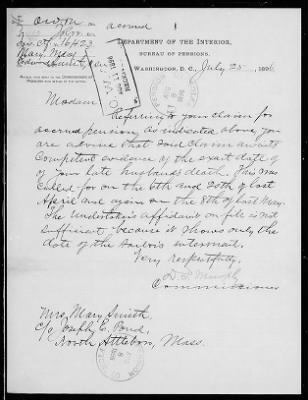 accrued
DEPARTMENT OF THE INTERIOR,
BUREAU OF PENSIONS,
WASHINGTON, D. C., July 25, 1896
Madam:
Referring to your claim for
accrued pension, as indicated above, you
are advised that said claim awaits
competent evidence of the exact date of
of your late husband's death. This was
called for on the 6th and 20th of last
April and again on the 8th of last May.
The Undertaker's affidavit on file is not
sufficient because it shows only the
date of the Sailor's interment.
Very respectfully,
Commissioner
Mrs. Mary Smith,
c/o Joseph E. Pond,
North Attleboro, Mass.